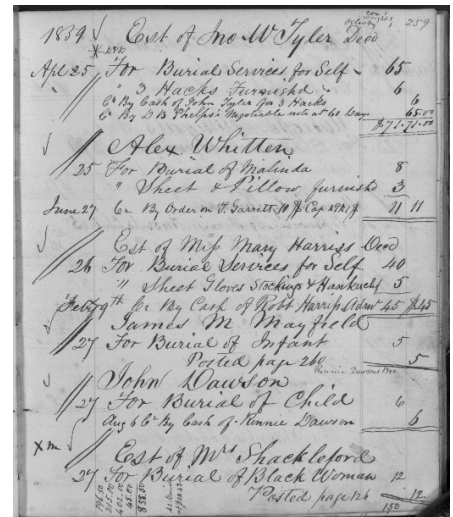 1839 Est of Jno W Tyler Decd 259
Apl 25 For Burial Services for Self 65
" 3 Hacks Furnishd 6
Cr By Cash of John Tyler for 3 Hacks 6
Cr By D B Phelps's Negotiable note at 60 Days 65.00
$71-71.00
Alex Whitten
25 For Burial of Malinda 8
" Sheet & Pillow furnishd 3
June 27 Cr By Order on T. Garrett 11 11
Est of Miss Mary Harriss Decd
26 For Burial Services for Self 40
" Sheet Gloves Stockings & Hankuchf 5
Feb 9th Cr By Cash of Robt Harriss Admr 45 $45
James M Mayfield
27 For Burial of Infant 5
Posted page 260 5
John Dawson
27 For Burial of Child 6
Aug 6 Cr By Cash of Kinnie Dawson 6
xm Est of Mrs Shackleford
27 For Burial of Black Woman 12
Posted page 126 12
150